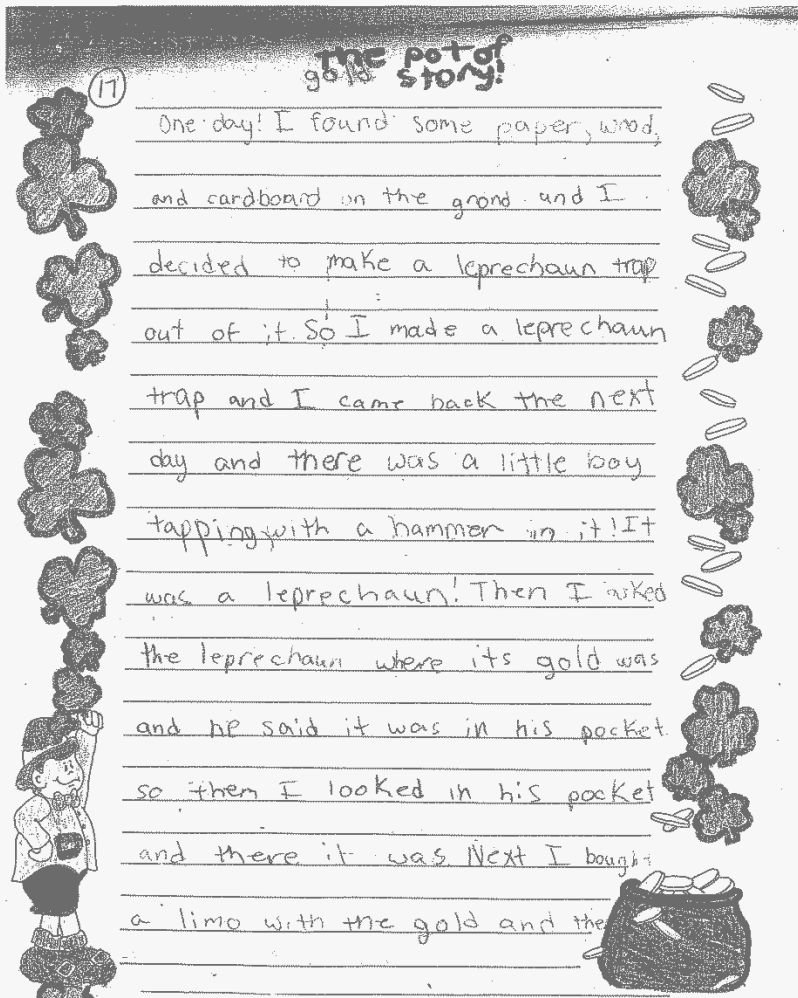 The pot of
gold story!
17
One day! I found some paper, wood,
and cardboard on the grond and I
decided to make a leprechaun trap
out of it. So I made a leprechaun
trap and I came back the next
day and there was a little boy
tapping with a hammer in it! It
was a leprechaun! Then I asked
the leprechaun where its gold was
and he said it was in his pocket.
so then I looked in his pocket
and there it was Next I bought
a limo with the gold and the